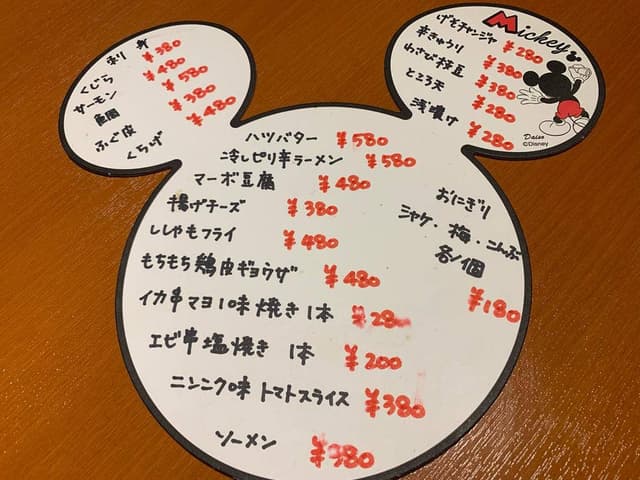 刺身 ¥380
くじら ¥480
サーモン ¥580
魚個 ¥380
ふぐ皮 ¥480
くらげ
Mickey
げそチャンジャ ¥280
辛きゅうり ¥380
わさび枝豆 ¥380
ところ天 ¥280
浅漬け ¥280
Daiso
©Disney
ハツバター ¥580
冷しピリ辛ラーメン ¥580
マーボ豆腐 ¥480
揚げチーズ ¥380
ししゃもフライ ¥480
もちもち鶏皮ギョウザ ¥480
イカ串マヨ味焼き1本 ¥28
エビ串塩焼き 1本 ¥200
ニンニク味トマトスライス ¥380
ソーメン ¥380
おにぎり
シャケ・梅・こんぶ
各1個
¥180